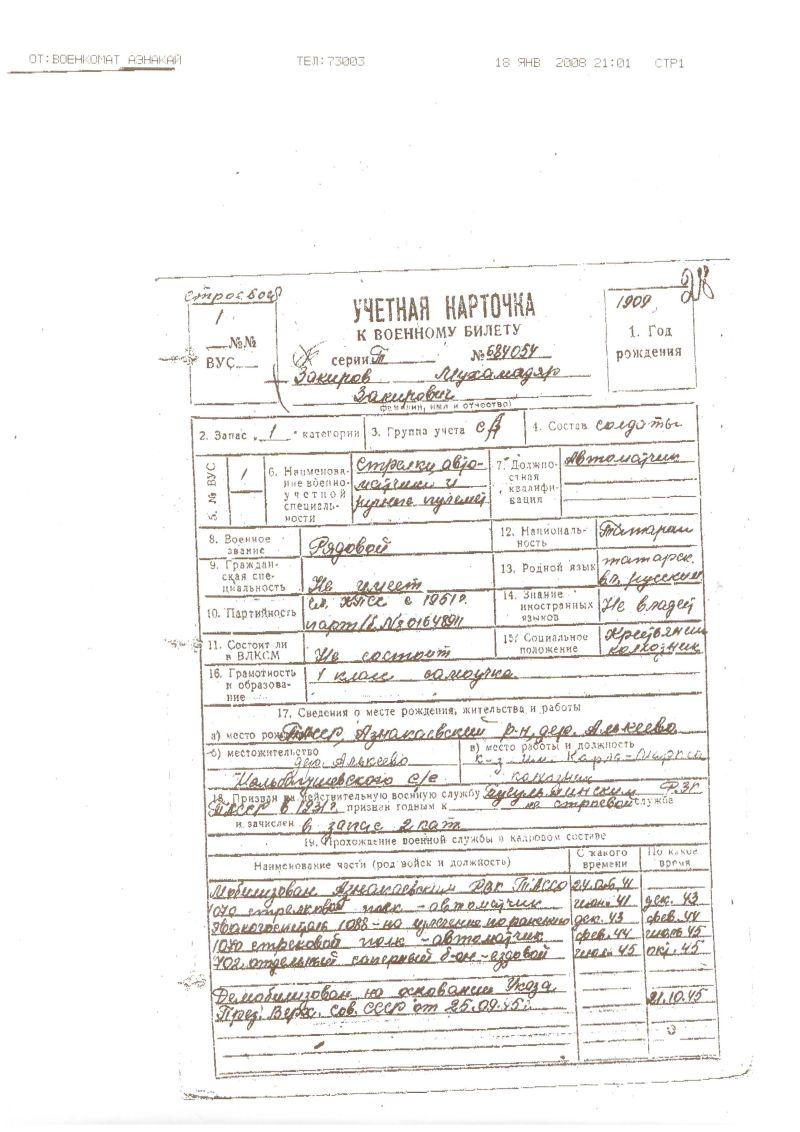 ОТ:ВОЕНКОМАТ АЗНАКАЙ ТЕЛ:73003 18 ЯНВ 2008 21:01 СТР1
28
Строевой
1
№№
ВУС
УЧЕТНАЯ КАРТОЧКА
К ВОЕННОМУ БИЛЕТУ
серии Т № 684054
Закиров Мухамадяр
Закирович
(фамилия, имя и отчество)
1909
1. Год
рождения
2. Запас „ 1 " категории
3. Группа учета СА
4. Состав солдаты
5. № ВУС
1
6. Наименова-
ние военно-
учетной
специаль-
ности
Стрелки авто-
матчики и
ручного пулемет
7. Должно-
стная
квалифи-
кация
Автоматчик
8. Военное
звание
Рядовой
9. Граждан-
ская спе-
циальность
Не имеет
10. Партийность
КПСС с 1951г.
парт/б №01648911
11. Состоит ли
в ВЛКСМ
Не состоит
12. Националь-
ность
Татарин
13. Родной язык
татарск.
вл. русским
14. Знание
иностранных
языков
Не владеет
15. Социальное
положение
Крестьянин
колхозник
16. Грамотность
и образова-
ние
1 класс самоучка
17. Сведения о месте рождения, жительства и работы
а) место рожд. ТАССР, Азнакаевский р-н, дер. Алькеево
б) местожительство
дер. Алькеево
с/с
в) место работы и должность
к-з им. Карла-Маркса
колхозник
18. Призван на действительную военную службу Бугульминским РВК
ТАССР в 1931г. признан годным к на строевой службе
и зачислен в запас 2 кат
19. Прохождение военной службы в кадровом составе
Наименование части (род войск и должность) С какого времени По какое время
Мобилизован Азнакаевским РВК ТАССР 24.06.41
стрелковый полк - автоматчик июнь 41 дек. 43
Эвакогоспиталь 1088 - на излечение по ранению дек. 43 фев. 44
стрелковой полк - автоматчик фев. 44 июль 45
702 отдельный саперный б-он - ездовой июль 45 окт. 45
Демобилизован на основании Указа 21.10.45
През. Верх. Сов. СССР от 25.09.45г.